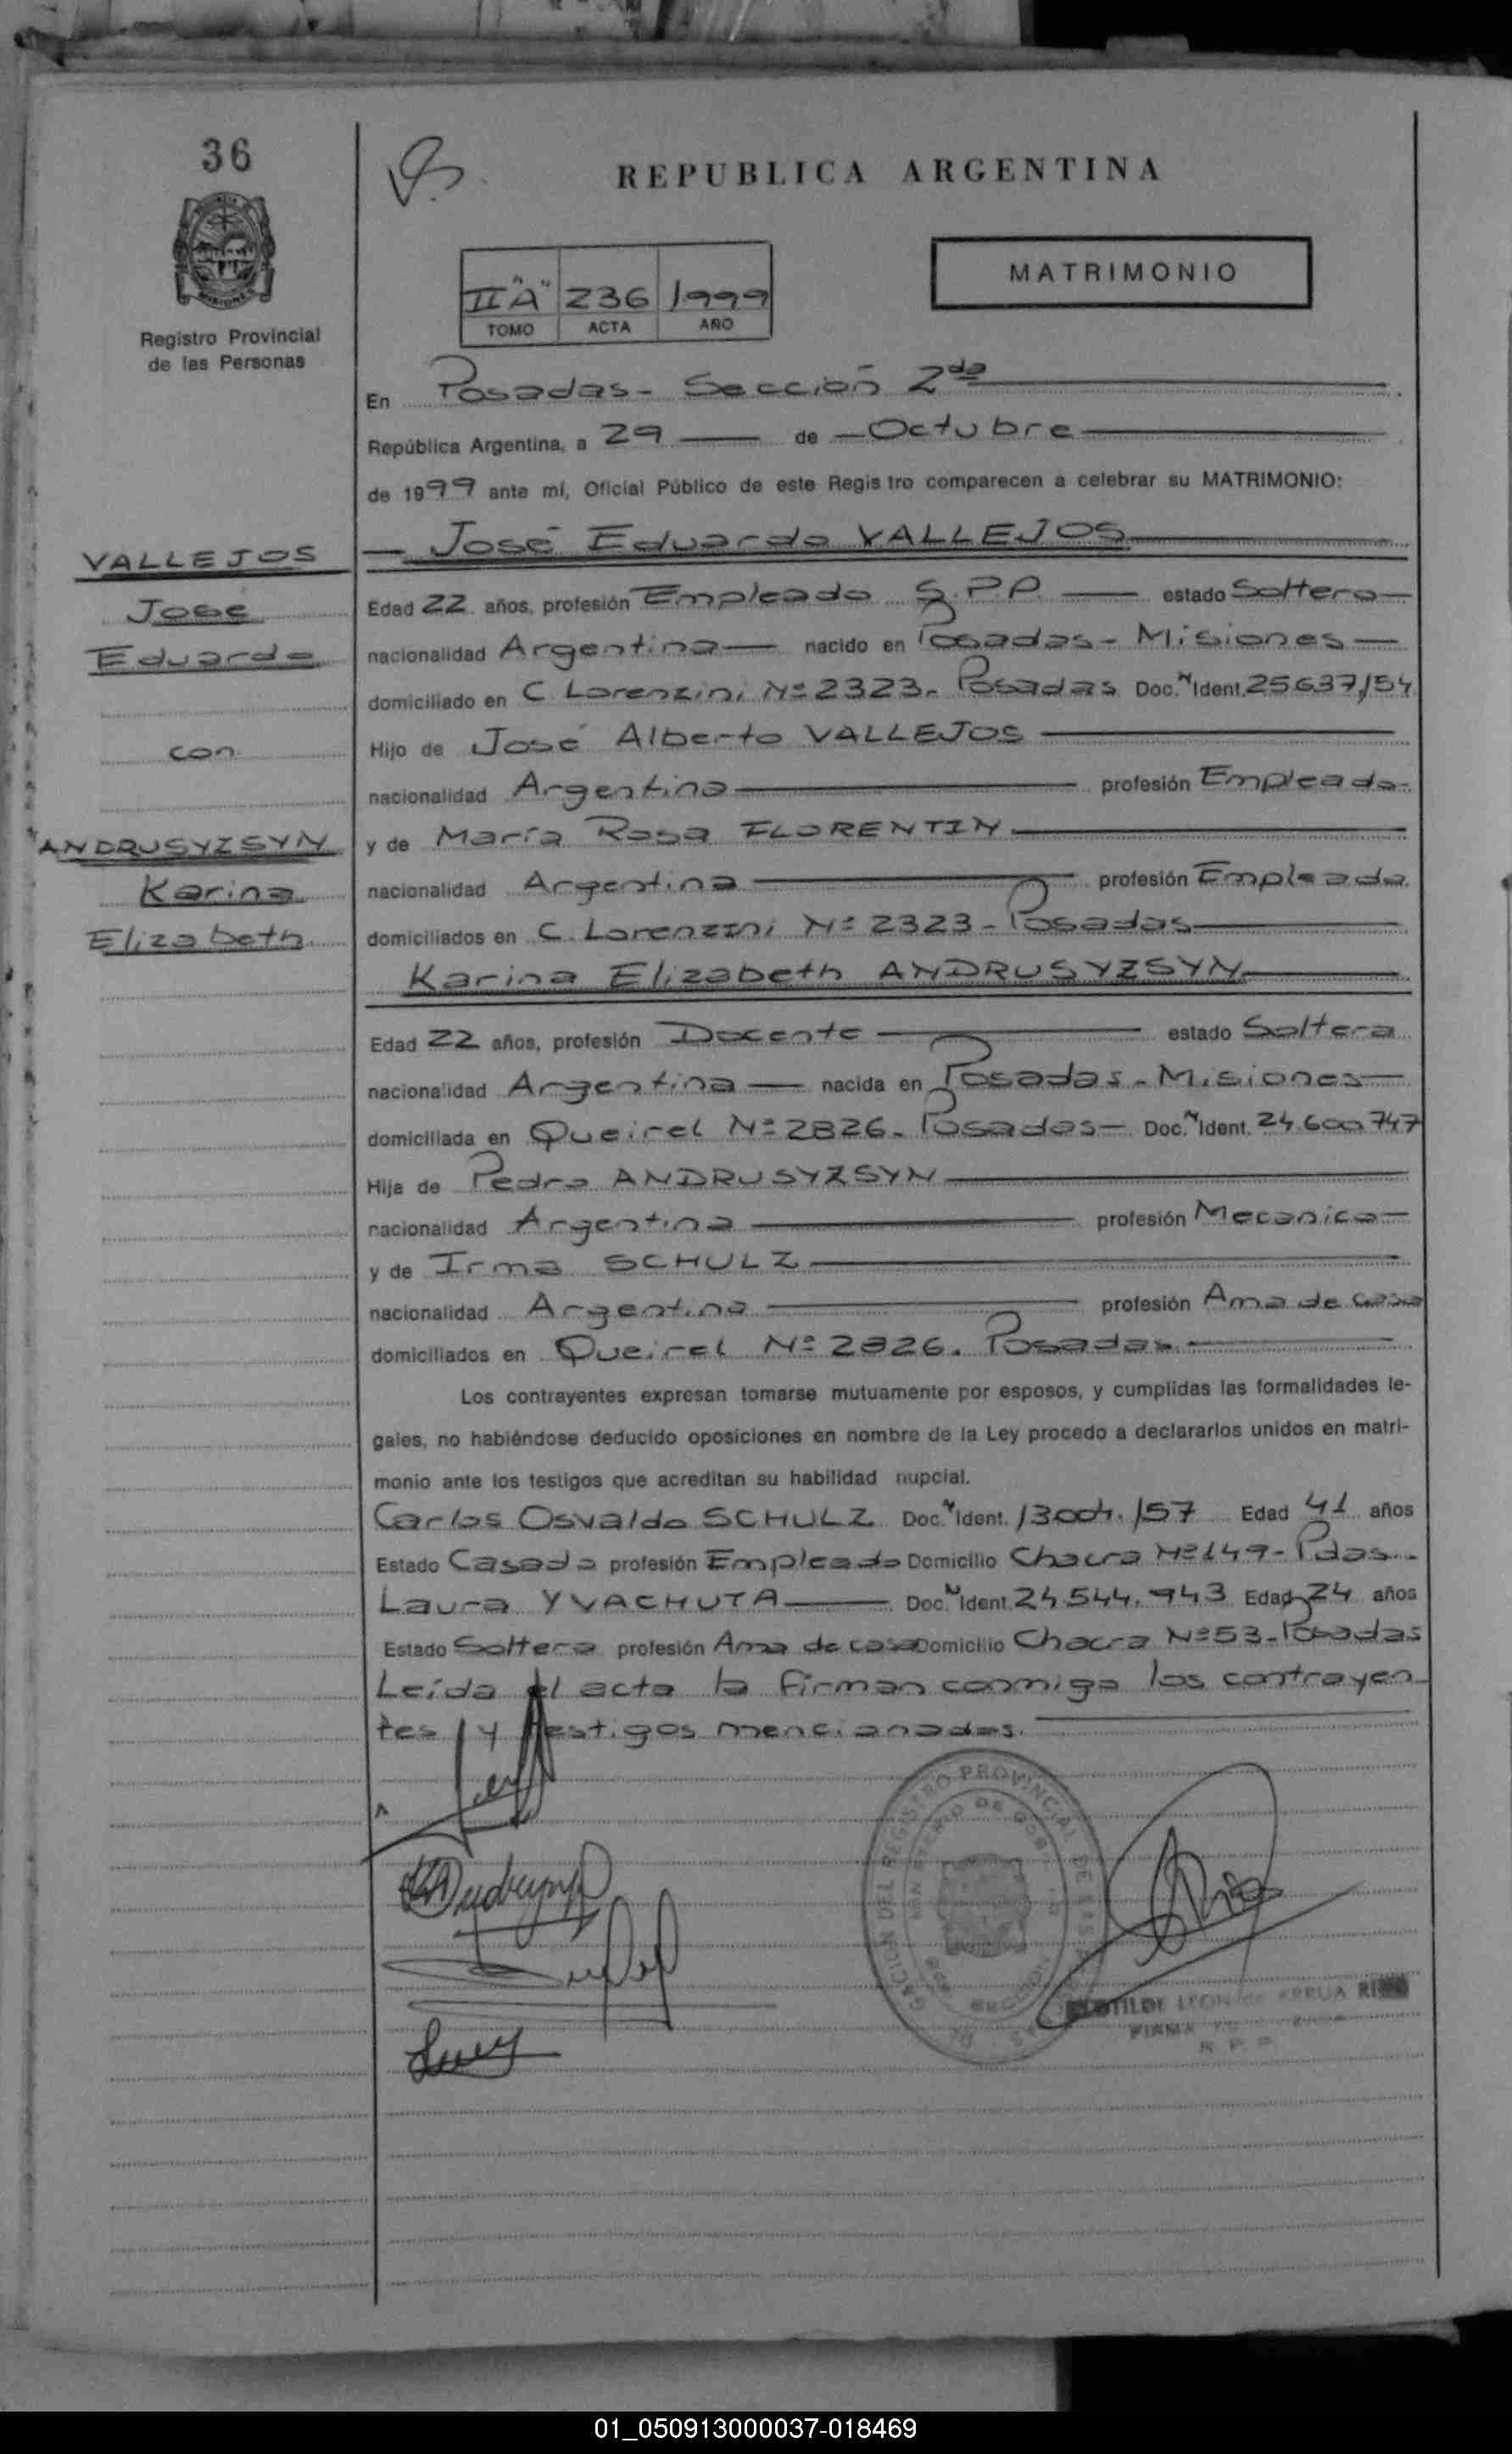 36
REPUBLICA ARGENTINA
MATRIMONIO
II "A" 236 1999
TOMO ACTA AÑO
Registro Provincial
de las Personas
En Posadas - Sección 2da
República Argentina, a 29 de Octubre
de 1999 ante mí, Oficial Público de este Registro comparecen a celebrar su MATRIMONIO:
VALLEJOS
José
Eduardo
con
ANDRUSYZSYN
Karina
Elizabeth
José Eduardo VALLEJOS
Edad 22 años, profesión Empleado S.P.P. estado Soltero
nacionalidad Argentina nacido en Posadas - Misiones
domiciliado en C Lorenzini Nº 2323. Posadas Doc. N Ident. 25.637,154
Hijo de José Alberto VALLEJOS
nacionalidad Argentina profesión Empleado
y de María Rosa FLORENTIN
nacionalidad Argentina profesión Empleada
domiciliados en C. Lorenzini Nº 2323 - Posadas
Karina Elizabeth ANDRUSYZSYN
Edad 22 años, profesión Docente estado Soltera
nacionalidad Argentina nacida en Posadas - Misiones
domiciliada en Queirel Nº 2826. Posadas Doc. N Ident. 24.600.747
Hija de Pedro ANDRUSYZSYN
nacionalidad Argentina profesión Mecanico
y de Irma SCHULZ
nacionalidad Argentina profesión Ama de casa
domiciliados en Queirel Nº 2826. Posadas
Los contrayentes expresan tomarse mutuamente por esposos, y cumplidas las formalidades le-
gales, no habiéndose deducido oposiciones en nombre de la Ley procedo a declararlos unidos en matri-
monio ante los testigos que acreditan su habilidad nupcial.
Carlos Osvaldo SCHULZ Doc. N Ident. 13.004.157 Edad 41 años
Estado Casado profesión Empleado Domicilio Chacra Nº 149 - Pdas.
Laura YVACHUTA Doc. N Ident. 24.544.943 Edad 24 años
Estado Soltera profesión Ama de casa Domicilio Chacra Nº 53 - Posadas
Leída el acta la firman conmigo los contrayen-
tes y testigos mencionados.
REGISTRO PROVINCIAL DE LAS
MINISTERIO DE GOB
LEON de ARRUA
FIRMA
R. P. P.
01_050913000037-018469